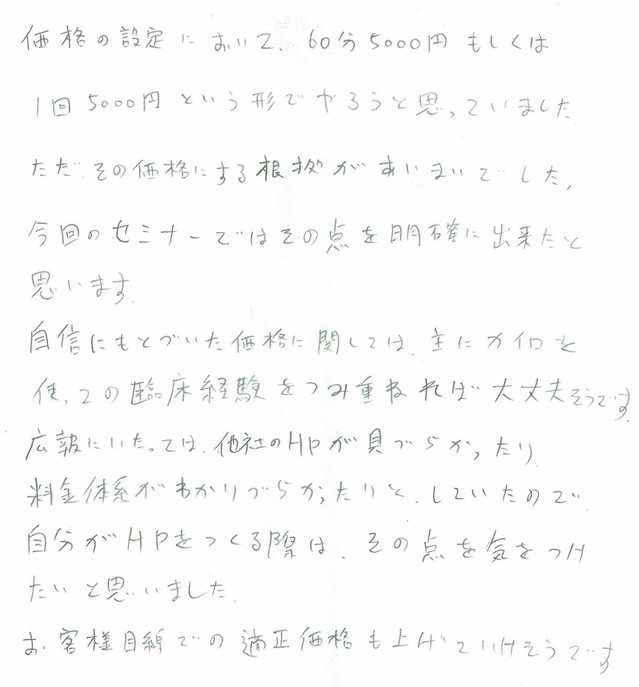 価格の設定において、60分5000円もしくは
1回5000円という形でやろうと思っていました
ただ、その価格にする根拠があいまいでした、
今回のセミナーではその点を明確に出来たと
思います。
自信にもとづいた価格に関しては、主にカイロを
使っての臨床経験をつみ重ねれば大丈夫そうです
広報にいたっては、他社のHPが見づらかったり
料金体系がわかりづらかったりと、していたので
自分がHPをつくる際は、その点を気をつけ
たいと思いました。
お客様目線での適正価格も上げていけそうです